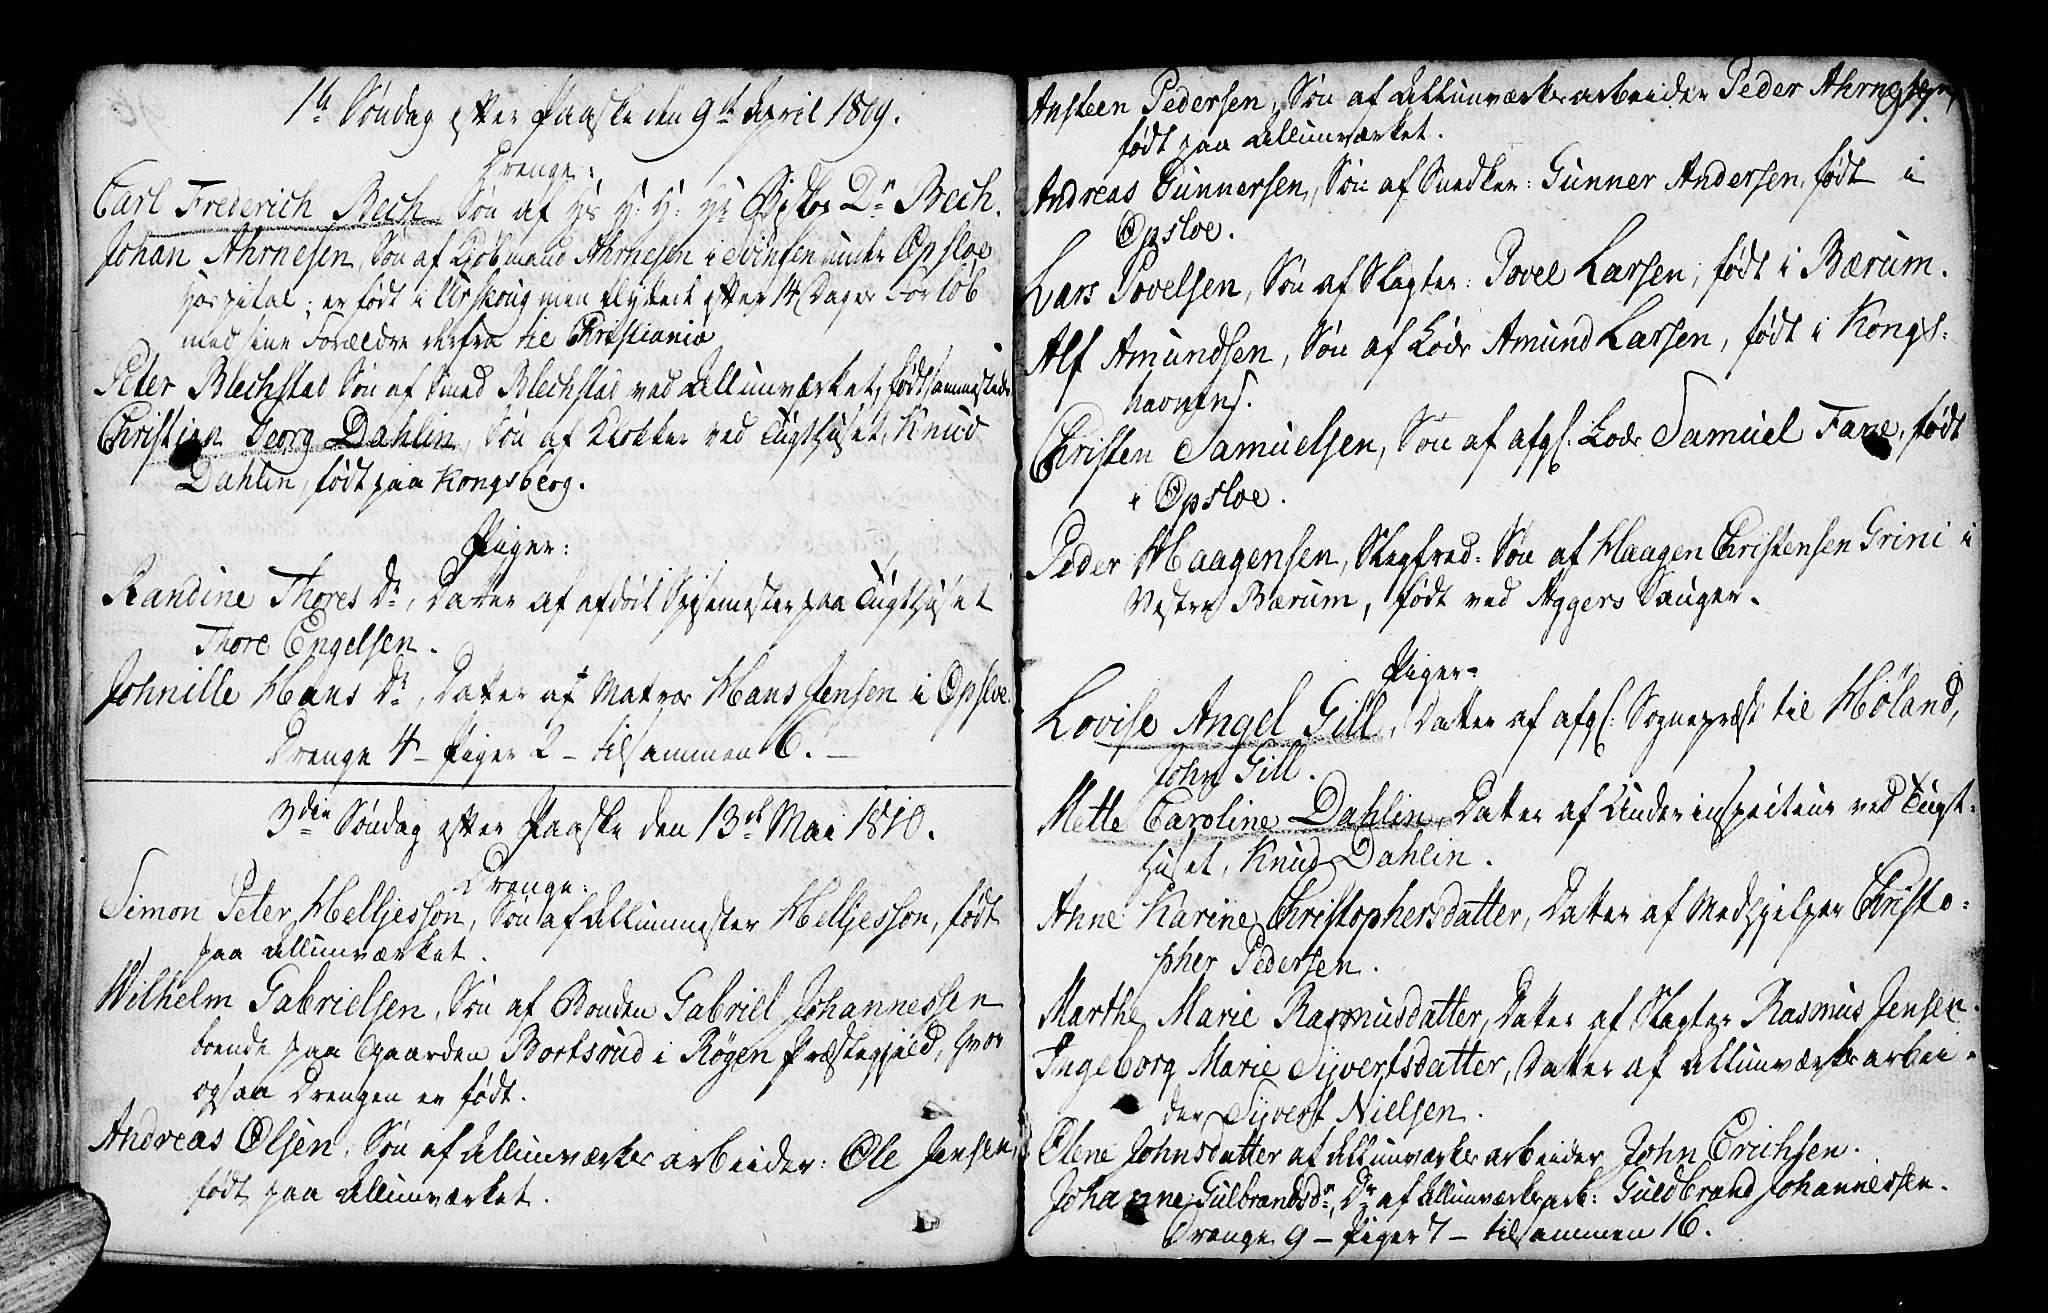 1ste Søndag efter Paaske den 9de April 1809.
Drenge:
Carl Frederich Bech Søn af Hs: H: H: Hr Biskop Dr Bech.
Johan Ahrnesen, Søn af Kjøbmand Ahrnesen i Svingen under Opsloe
Hospital; er født i Urskoug men flyttede efter 14 Dages Forløb
med sine Forældre derfra til Christiania
Peter Blechstad Søn af Smed Blechstad ved Allunværket, født sammesteds
Christian Georg Dahlin, Søn af Klokker ved Tugthuset, Knud
Dahlin, født paa Kongsberg.
Piger:
Randine Thores Dr, Datter af afdøde Spisemester paa Tugthuset
Thore Engelsen.
Johnille Hans Dr, Datter af Matros Hans Jensen i Opsloe.
Drenge 4 – Piger 2 – tilsammen 6. –
3die Søndag efter Paaske den 13de Mai 1810.
Drenge:
Simon Peter Helljesson, Søn af Allunmester Helljesson, født
paa Allunværket.
Wilhelm Gabrielsen, Søn af Bonden Gabriel Johannessen
boende paa Gaarden Bortsrud i Røgen Præstegjeld, hvor
ogsaa Drengen er født.
Andreas Olsen, Søn af Allunværksarbeider: Ole Jensen,
født paa Allunværket.
97.
Ansteen Pedersen, Søn af Allunværksarbeider Peder Ahrnesen,
født paa Allunværket.
Andreas Gunnersen, Søn af Snedker: Gunner Andersen, født i
Opsloe.
Lars Povelsen, Søn af Slagter: Povel Larsen, født i Bærum.
Alf Amundsen, Søn af Lods Amund Larsen, født i Kongs-
havnens.
Christen Samuelsen, Søn af afg: Lods Samuel Fane, født
i Opsloe.
Peder Haagensen, Slegfred-Søn af Haagen Christensen Grini i
Vestre Bærum, født ved Aggers Sauger.
Piger-
Lovise Angel Gill, Datter af afg: Sognepræst til Høland,
John Gill.
Mette Caroline Dahlin, Datter af Underinspecteur ved Tugt-
huset, Knud Dahlin.
Anne Karine Christophersdatter, Datter af Medhjelper Christo-
pher Pedersen.
Marthe Marie Rasmusdatter, Datter af Slagter Rasmus Jensen.
Ingeborg Marie Sijvertsdatter, Datter af Allunværksarbei-
der Sijvert Nielsen.
Olene Johnsdatter af Allunværksarbeider John Erichsen.
Johanne Gulbrandsdr, Dr af Allunværksarb: Guldbrand Johannessen.
Drenge 9 – Piger 7 – tilsammen 16.